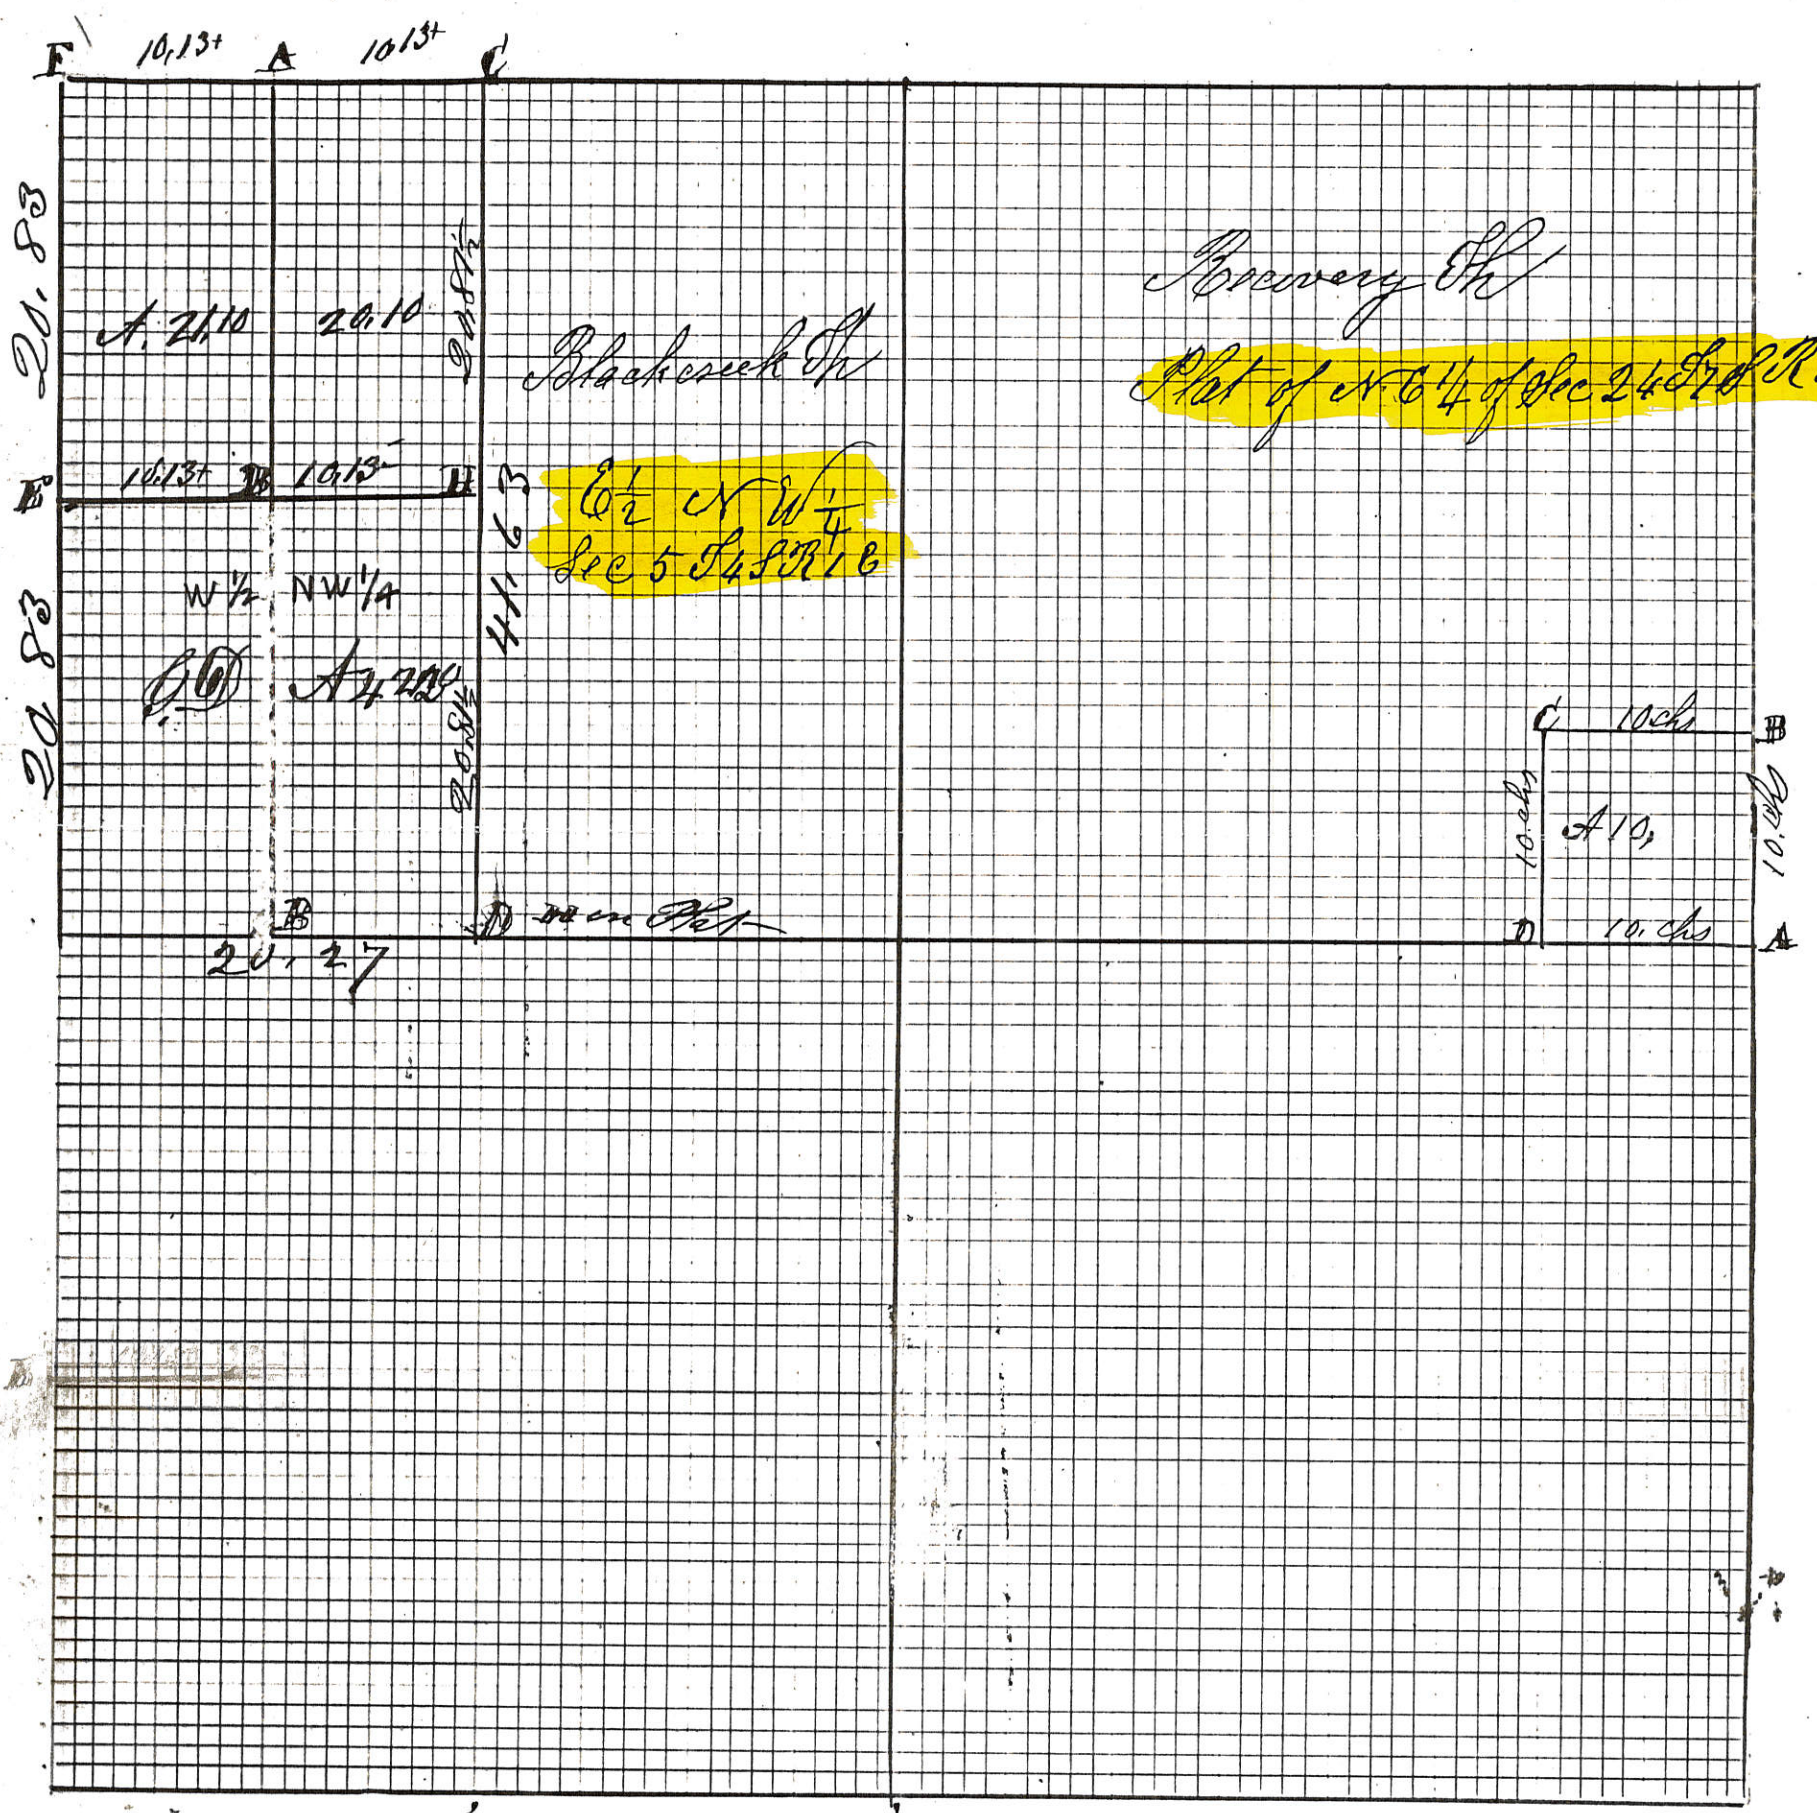 F 10,13+ A 10,13+ C
20.83
A. 21,10 20,10 20.81½
Blackcreek Th
Recovery Th
Plat of N E ¼ of Sec 24 T 7 S R
E 10,13+ B 10,13- H
41.63
E ½ N W ¼
Sec 5 T 4 S R 1 E
W ½ NW ¼
20 83
A 42
20.81½
C 10 chs B
10 chs A 10, 10. chs
B D Plat
D 10, chs A
20, 27